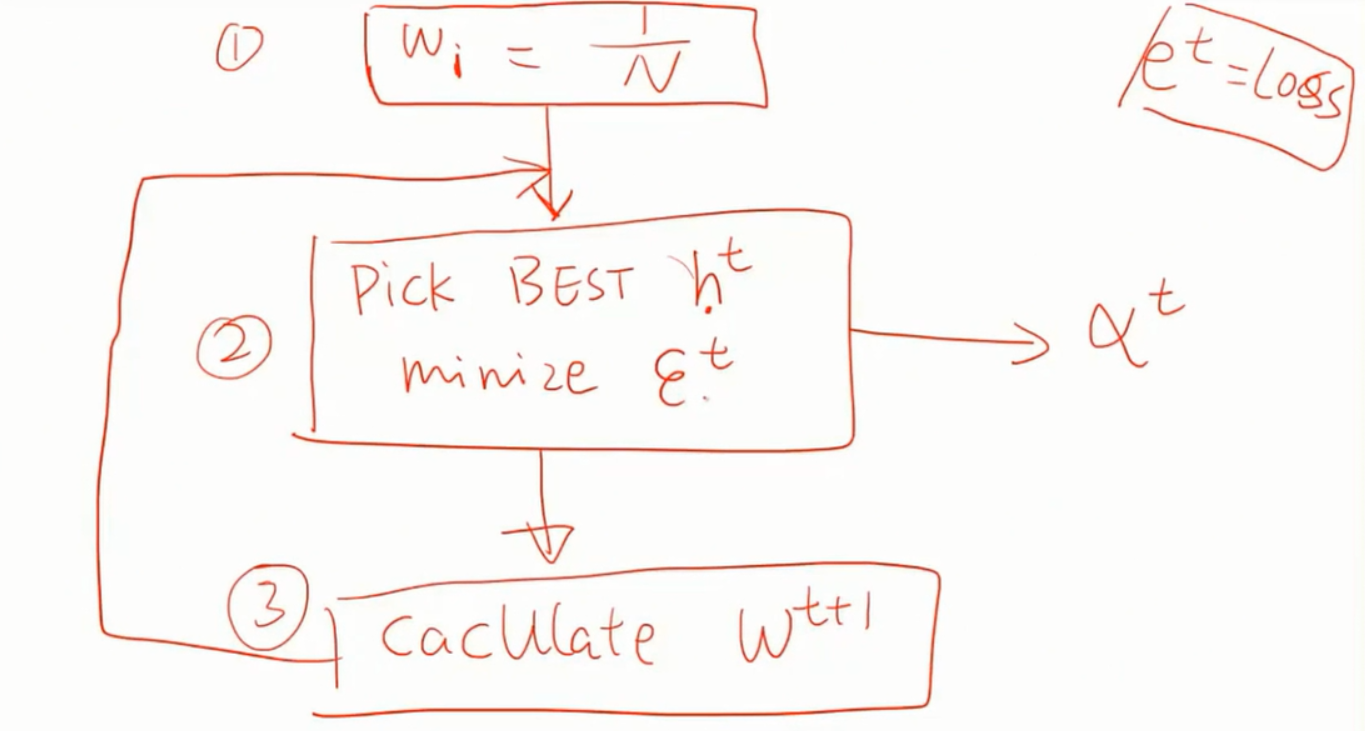 ① wᵢ = 1/N
eᵗ = Loss
② Pick BEST hᵗ
minize εᵗ
αᵗ
③ cacUlate Wᵗ⁺¹